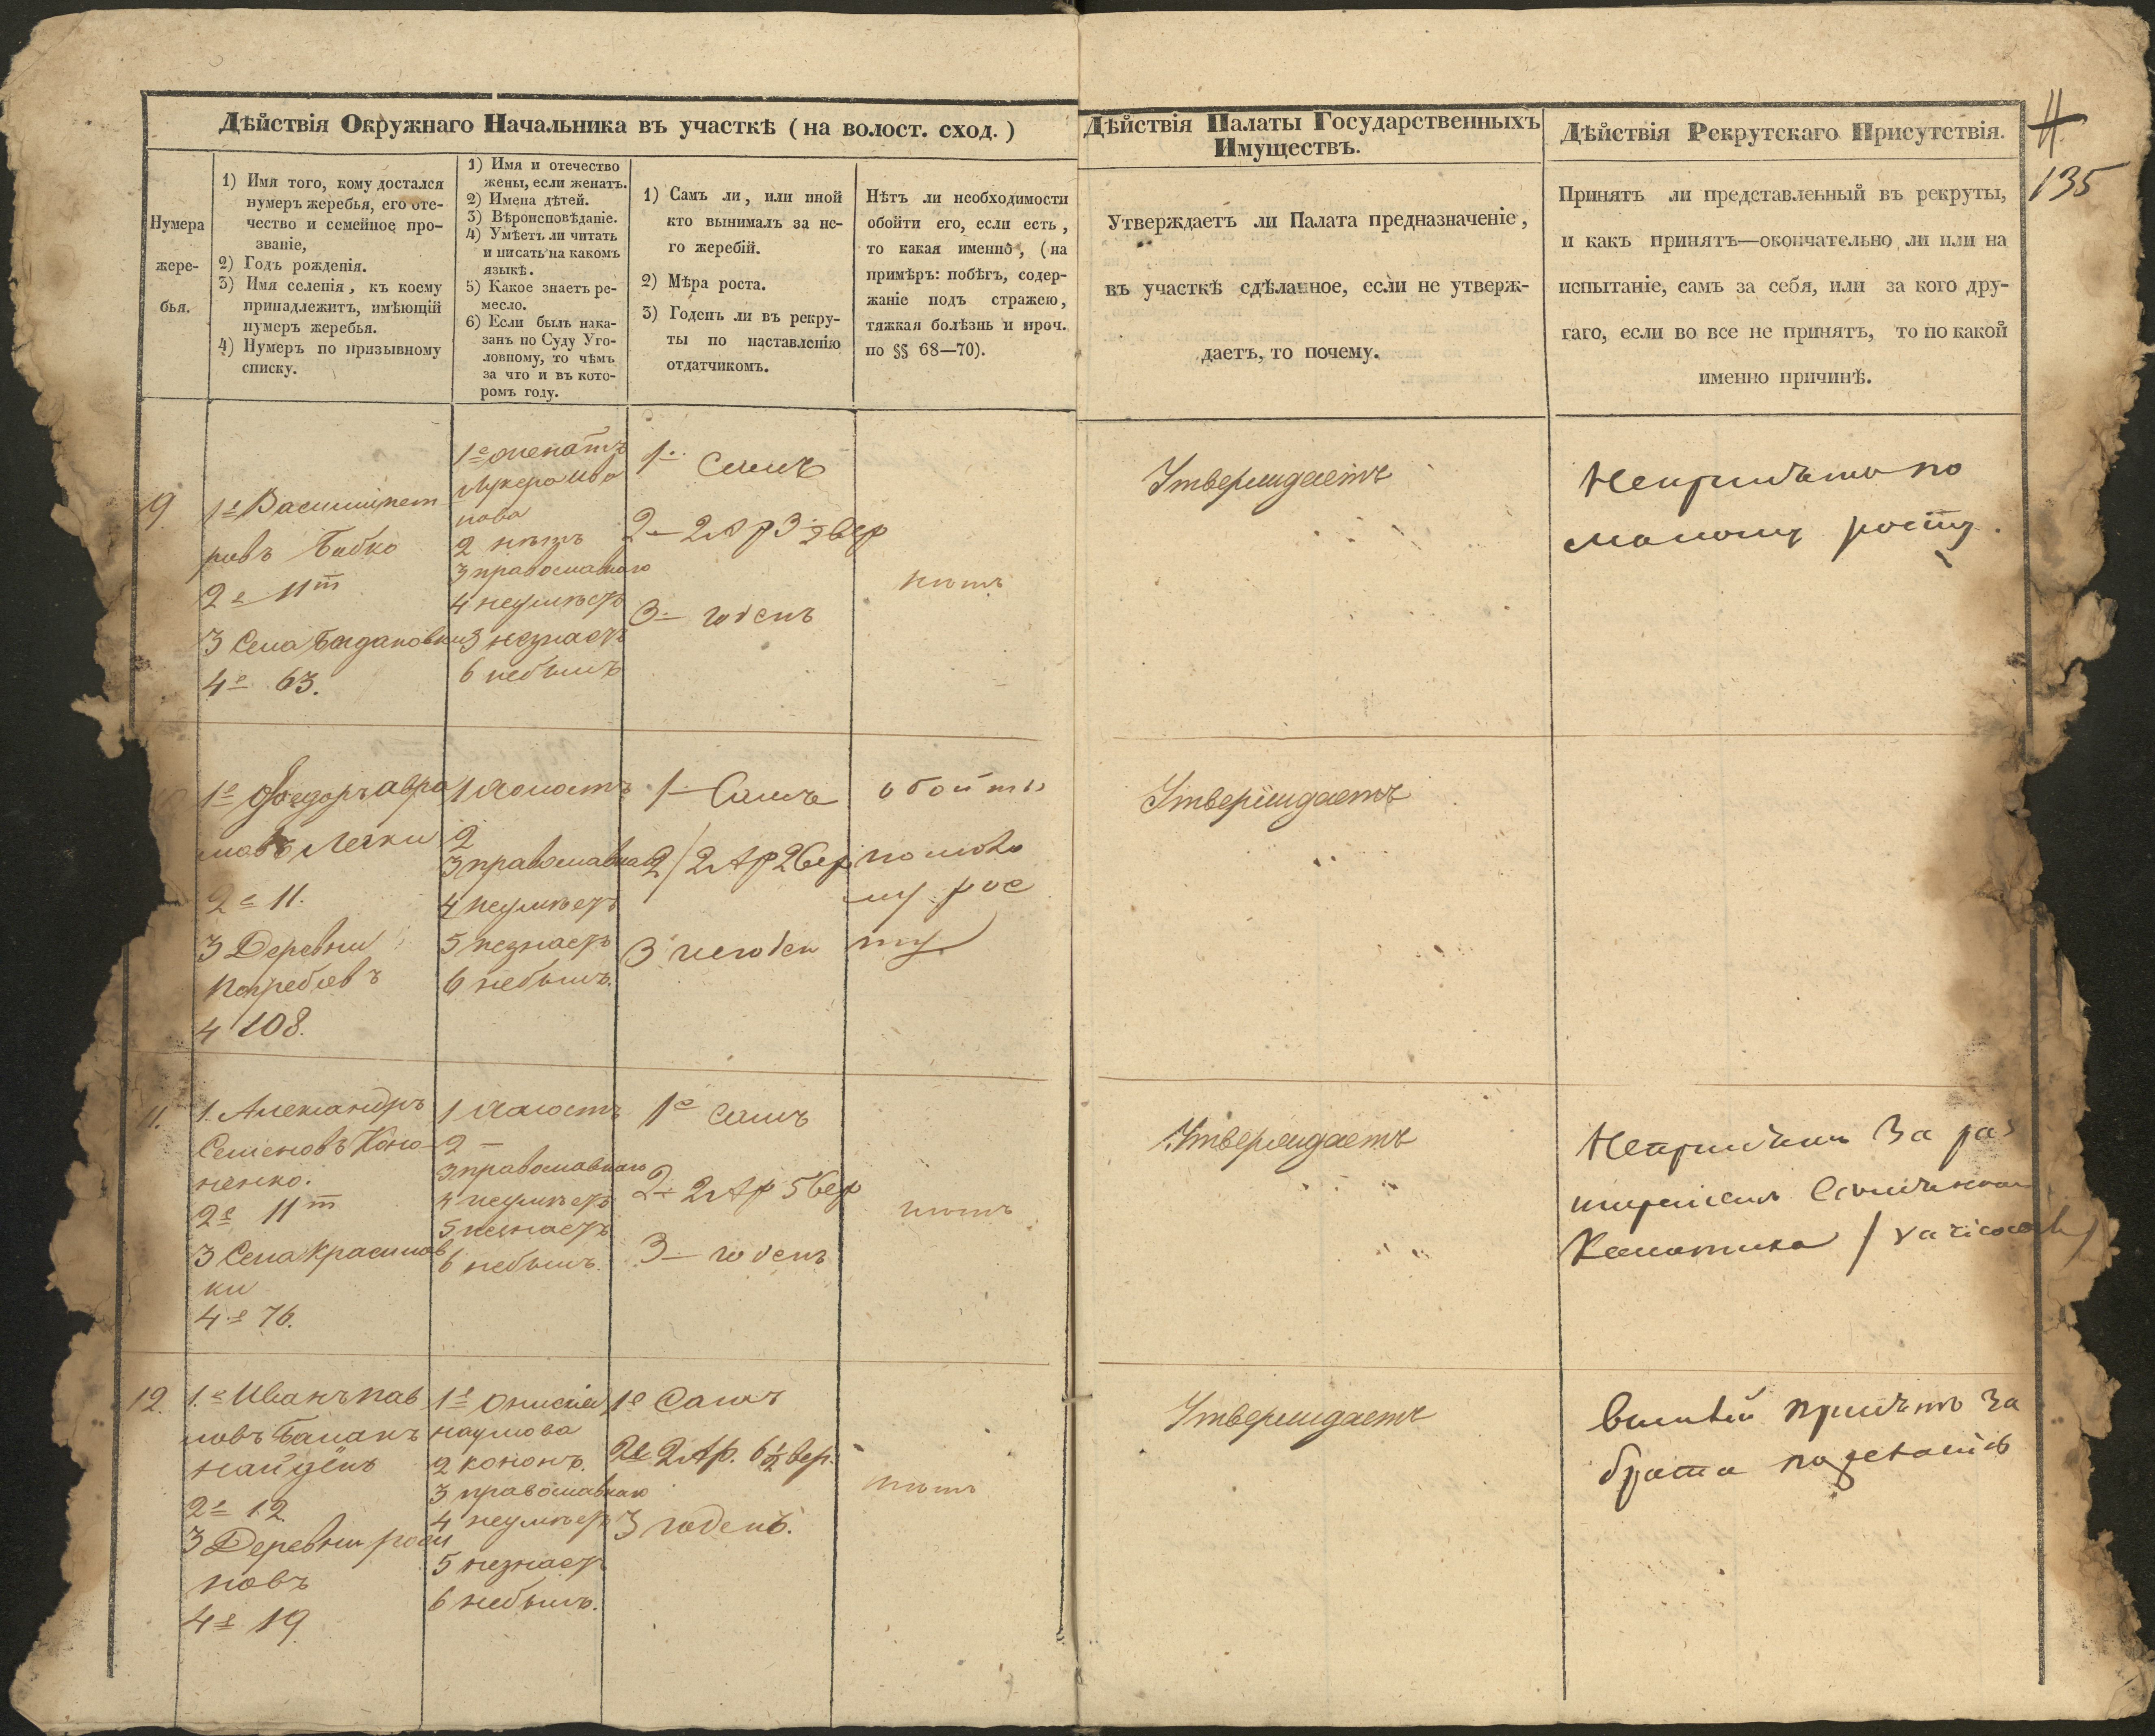 Дѣйствія Окружнаго Начальника въ участкѣ (на волост. сход.)
Нумера
жере-
бья.
1) Имя того, кому достался
нумеръ жеребья, его оте-
чество и семейное про-
званіе,
2) Годъ рожденія.
3) Имя селенія, къ коему
принадлежитъ, имѣющій
нумеръ жеребья.
4) Нумеръ по призывному
списку.
1) Имя и отечество
жены, если женатъ.
2) Имена дѣтей.
3) Вѣроисповѣданіе.
4) Умѣетъ ли читать
и писать на какомъ
языкѣ.
5) Какое знаетъ ре-
месло.
6) Если былъ нака-
занъ по Суду Уго-
ловному, то чѣмъ
за что и въ кото-
ромъ году.
1) Самъ ли, или иной
кто вынималъ за не-
го жеребій.
2) Мѣра роста.
3) Годенъ ли въ рекру-
ты по наставленію
отдатчикомъ.
Нѣтъ ли необходимости
обойти его, если есть,
то какая именно, (на
примѣръ: побѣгъ, содер-
жаніе подъ стражею,
тяжкая болѣзнь и проч.
по §§ 68—70).
Дѣйствія Палаты Государственныхъ
Имуществъ.
Утверждаетъ ли Палата предназначеніе,
въ участкѣ сдѣланное, если не утверж-
даетъ, то почему.
Дѣйствія Рекрутскаго Присутствія.
Принятъ ли представленный въ рекруты,
и какъ принятъ—окончательно ли или на
испытаніе, самъ за себя, или за кого дру-
гаго, если во все не принятъ, то по какой
именно причинѣ.
135
9.
1е Василій пет
ровъ Бабко
2е 11т
3 Села Богдановки
4е 63.
1е женатъ
нова
2 нѣтъ
3 православнаго
4 неумѣетъ
незнаетъ
6 небылъ
1. Самъ
2 — 2 Ар 3 ½ вер
3 — годенъ
нѣтъ
Утверждаетъ
Непринятъ по
малому росту.
1е Феодоръ Авра
мовъ
2е 11.
3 Деревни
Погребовъ
4 108.
1 Холостъ
2
3 православнаго
4 неумѣетъ
5 незнаетъ
6 небылъ.
1 — Самъ
2/ 2 Ар 2 вер
3 негоден
обойти
по мало
му рос
ту
Утверждаетъ
11.
1. Александръ
Семеновъ Коно
ненко.
2е 11т
3 Села Красилов
ки
4е 76.
1 Холостъ
2 —
3 православнаго
4 неумѣетъ
5 незнаетъ
6 небылъ.
1е Самъ
2 2 Ар 5 вер
3 — годенъ
нѣтъ
Утверждаетъ
Непринятъ За рас
ширеніемъ Сѣмяннаго
Канатика /
12.
1.е Иванъ Пав
ловъ Балан
2е 12
3 Деревни
новъ
4е 19
1е Онисія
Наумова
2 Кононъ.
3 православнаго
4 неумѣетъ
5 незнаетъ
6 небылъ.
1е Самъ
2е 2 Ар. 6 ½ вер.
3 годенъ.
нѣтъ
Утверждаетъ
принятъ за
брата